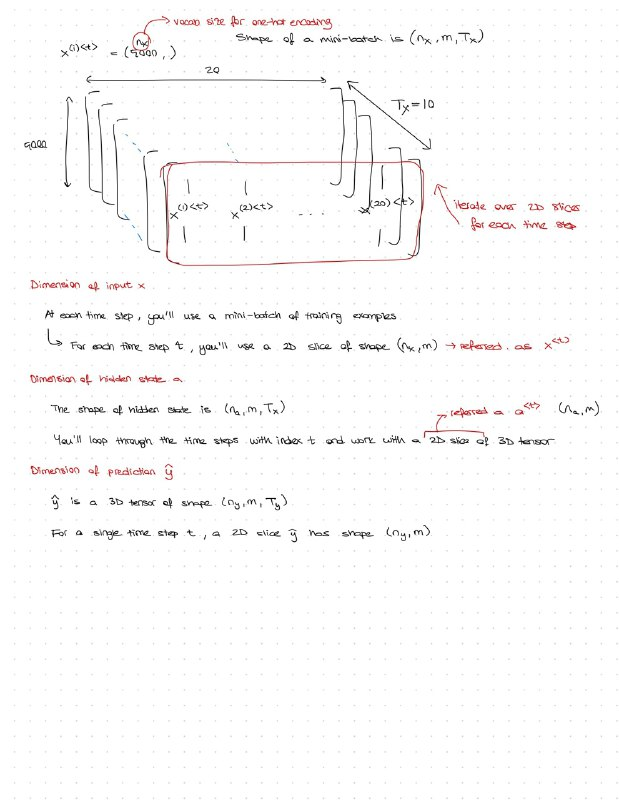 → vocab size for one-hot encoding
nx
x^(i)<t> = (5000, )
Shape of a mini-batch is (nx, m, Tx)
20
Tx = 10
5000
x^(1)<t> x^(2)<t> ... x^(20)<t>
iterate over 2D slices
for each time step
Dimension of input x
At each time step, you'll use a mini-batch of training examples.
↳ For each time step t, you'll use a 2D slice of shape (nx, m) → referred as x^<t>
Dimension of hidden state a
The shape of hidden state is (na, m, Tx)
→ referred a a^<t> (na, m)
You'll loop through the time steps with index t and work with a 2D slice of 3D tensor
Dimension of prediction ŷ
ŷ is a 3D tensor of shape (ny, m, Ty)
For a single time step t, a 2D slice ŷ has shape (ny, m)